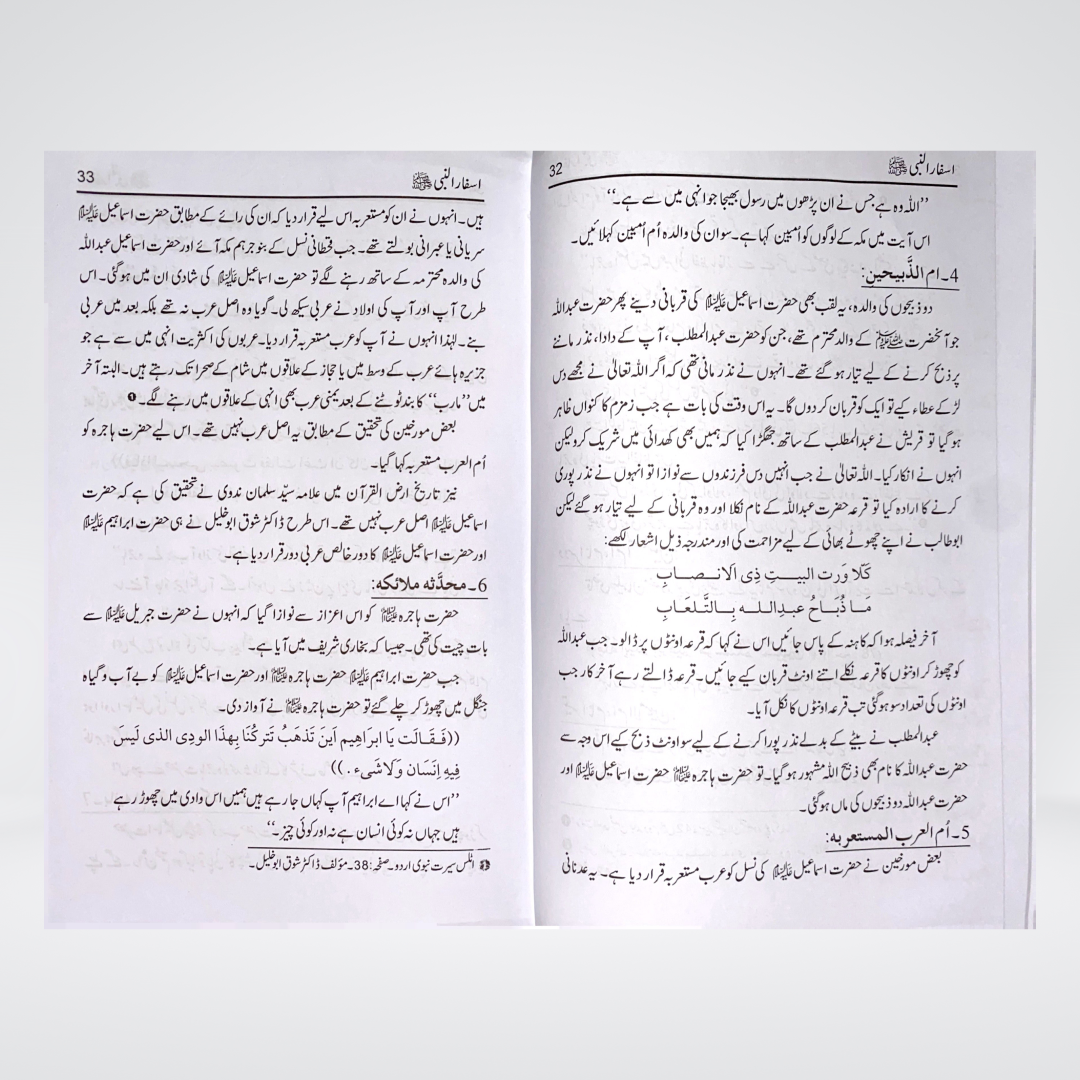 اسفار النبی ﷺ 32
”اللہ وہ ہے جس نے ان پڑھوں میں رسول بھیجا جو انہی میں سے ہے۔“
اس آیت میں مکہ کے لوگوں کو اُمیین کہا ہے۔ سو ان کی والدہ اُم اُمیین کہلائیں۔
4۔ ام الذَّبیحین:
دو ذبیحوں کی والدہ، یہ لقب بھی حضرت اسماعیل علیہ السلام کی قربانی دینے پھر حضرت عبداللہ
جو آنحضرت ﷺ کے والد محترم تھے، جن کو حضرت عبدالمطلب، آپ کے دادا، نذر ماننے
پر ذبح کرنے کے لیے تیار ہو گئے تھے۔ انہوں نے نذر مانی تھی کہ اگر اللہ تعالیٰ نے مجھے دس
لڑکے عطاء کیے تو ایک کو قربان کر دوں گا۔ یہ اس وقت کی بات ہے جب زمزم کا کنواں ظاہر
ہو گیا تو قریش نے عبدالمطلب کے ساتھ جھگڑا کیا کہ ہمیں بھی کھدائی میں شریک کرو لیکن
انہوں نے انکار کیا۔ اللہ تعالیٰ نے جب انہیں دس فرزندوں سے نوازا تو انہوں نے نذر پوری
کرنے کا ارادہ کیا تو قرعہ حضرت عبداللہ کے نام نکلا اور وہ قربانی کے لیے تیار ہو گئے لیکن
ابو طالب نے اپنے چھوٹے بھائی کے لیے مزاحمت کی اور مندرجہ ذیل اشعار لکھے:
کَلّا وَرت البیـتِ ذِی الَانـصـابِ
مَـا ذُبَـاح عبـدِاللـه بِـالتَّـلـعَـابِ
آخر فیصلہ ہوا کہ کاہنہ کے پاس جائیں اس نے کہا کہ قرعہ اونٹوں پر ڈالو۔ جب عبداللہ
کو چھوڑ کر اونٹوں کا قرعہ نکلے اتنے اونٹ قربان کیے جائیں۔ قرعہ ڈالتے رہے آخر کار جب
اونٹوں کی تعداد سو ہو گئی تب قرعہ اونٹوں کا نکل آیا۔
عبدالمطلب نے بیٹے کے بدلے نذر پورا کرنے کے لیے سو اونٹ ذبح کیے اس وجہ سے
حضرت عبداللہ کا نام بھی ذبیح اللہ مشہور ہو گیا۔ تو حضرت ہاجرہ علیہا السلام حضرت اسماعیل علیہ السلام اور
حضرت عبداللہ دو ذبیحوں کی ماں ہو گئی۔
5۔ اُم العرب المستعربه:
بعض مورخین نے حضرت اسماعیل علیہ السلام کی نسل کو عرب مستعربہ قرار دیا ہے۔ یہ عدنانی
اسفار النبی ﷺ 33
ہیں۔ انہوں نے ان کو مستعربہ اس لیے قرار دیا کہ ان کی رائے کے مطابق حضرت اسماعیل علیہ السلام
سریانی یا عبرانی بولتے تھے۔ جب قحطانی نسل کے بنو جرہم مکہ آئے اور حضرت اسماعیل عبداللہ
کی والدہ محترمہ کے ساتھ رہنے لگے تو حضرت اسماعیل علیہ السلام کی شادی ان میں ہو گئی۔ اس
طرح آپ اور آپ کی اولاد نے عربی سیکھ لی۔ گویا وہ اصل عرب نہ تھے بلکہ بعد میں عربی
بنے۔ لہٰذا انہوں نے آپ کو عرب مستعربہ قرار دیا۔ عربوں کی اکثریت انہی میں سے ہے جو
جزیرہ ہائے عرب کے وسط میں یا حجاز کے علاقوں میں شام کے صحرا تک رہتے ہیں۔ البتہ آخر
میں ”مارب“ کا بند ٹوٹنے کے بعد یمنی عرب بھی انہی کے علاقوں میں رہنے لگے۔ ❶
بعض مورخین کی تحقیق کے مطابق یہ اصل عرب نہیں تھے۔ اس لیے حضرت ہاجرہ کو
اُم العرب مستعربہ کہا گیا۔
نیز تاریخ ارض القرآن میں علامہ سیّد سلمان ندوی نے تحقیق کی ہے کہ حضرت
اسماعیل علیہ السلام اصل عرب نہیں تھے۔ اس طرح ڈاکٹر شوق ابو خلیل نے ہی حضرت ابراہیم علیہ السلام
اور حضرت اسماعیل علیہ السلام کا دور خالص عربی دور قرار دیا ہے۔
6۔ محدَّثه ملائکه:
حضرت ہاجرہ علیہا السلام کو اس اعزاز سے نوازا گیا کہ انہوں نے حضرت جبریل علیہ السلام سے
بات چیت کی تھی۔ جیسا کہ بخاری شریف میں آیا ہے۔
جب حضرت ابراہیم علیہ السلام حضرت ہاجرہ علیہا السلام اور حضرت اسماعیل علیہ السلام کو بے آب و گیاہ
جنگل میں چھوڑ کر چلے گئے تو حضرت ہاجرہ علیہا السلام نے آواز دی۔
((فَـقَـالَت یَا ابرَاهِیم اَینَ تَذهَبُ تَترکُنَا بِهذَا الودِی الذی لَیسَ
فِیهِ اِنسَان وَلَاشَیء.))
”اس نے کہا اے ابراہیم آپ کہاں جا رہے ہیں ہمیں اس وادی میں چھوڑ رہے
ہیں جہاں نہ کوئی انسان ہے نہ اور کوئی چیز۔“
❶ اٹلس سیرت نبوی اردو۔ صفحہ: 38۔ مؤلف ڈاکٹر شوق ابو خلیل۔